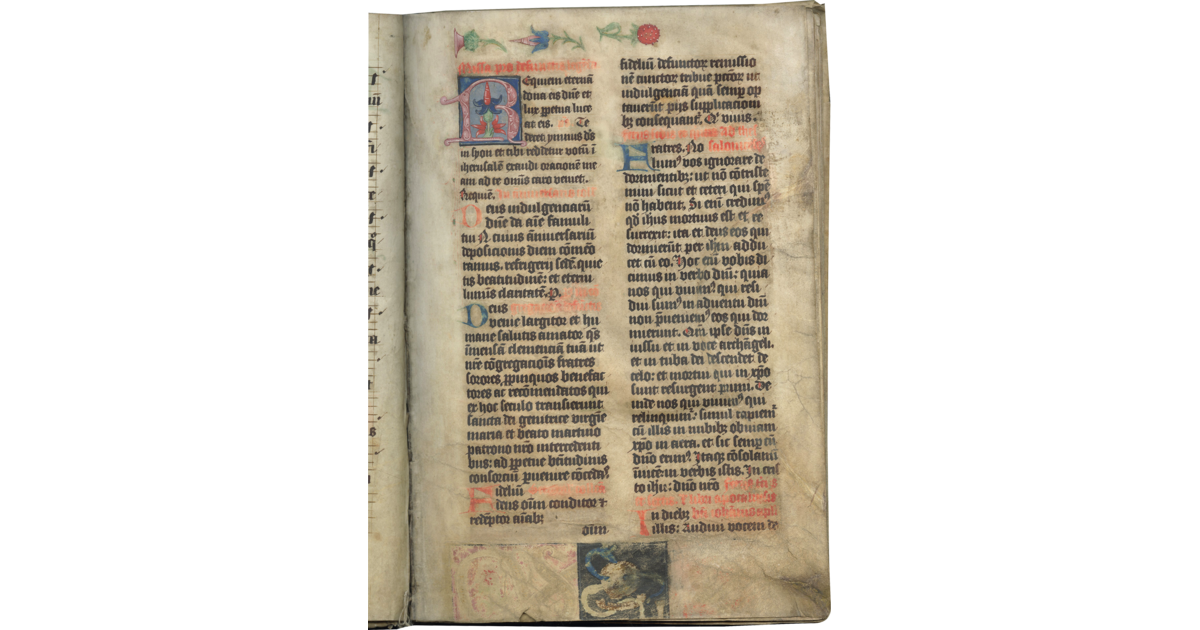 Requiem eternã
dona eis dñe et
lux ꝑpetua luce
at eis. Te
decet ymnus ds̃
in syon et tibi reddetur votũ ĩ
iherusalẽ exaudi orationẽ me
am ad te omĩs caro veniet.
Requiẽ.
Deus indulgenciarũ
dñe da aĩe famuli
tui N cuius ãniversariũ
deposicionis diem cõmẽo
ramus. refrigerij sedẽ. quie
tis beatitudinẽ: et eterni
luminis claritatẽ. P.
Deus
venie largitor et hu
mane salutis amator qs̃
ĩmensã clemenciã tuã ut
nr̃e cõgregacionis fratres
sorores, ꝓpinquos benefac
tores ac recõmendatos qui
ex hoc seculo transierunt
sancta dei genitrice virgĩe
maria et beato martino
patrono nr̃o intercedenti
bus: ad ꝑpetue bt̃itudinis
consortiũ ꝑuenire cõcedas
Fidelium
deus oĩm conditor ⁊
redẽptor aĩabꝫ
oĩm
fidelium defunctoꝝ remissio
nẽ cunctoꝝ tribue pctõꝝ ut
indulgenciã quã semꝑ op
taverũt pijs supplicacioni
bꝫ consequant᷑. Qͥ vivis.
Fratres. No
lumꝰ vos ignorare de
dormientibꝫ: ut nõ cõtriste
mini sicut et ceteri qui spẽ
nõ habent. Si enĩ credimꝰ
qd̃ ihus mortuus est et re
surrexit: ita et deus eos qui
dormierũt per ihm̃ addu
cet cũ eo. Hoc enĩ vobis di
cimus in verbo dñi: quia
nos qui vivimꝰ qui resi
dui sumꝰ in adventu dñi
non p̃veniemꝰ eos qui dor
mierunt. Qm̃ ipse dñs in
iussu et in voce archãgeli.
et in tuba dei descendet de
celo: et mortui qui in xp̃o
sunt resurgent primi. De
inde nos qui vivimꝰ qui
relinquimꝰ: simul rapiem᷑
cũ illis in nubibꝫ obviam
xp̃o in aera. et sic semꝑ cũ
dño erimꝰ. Itaqꝫ cõsolamĩ
ĩvicẽ in verbis istis. In cris
to ihu: dño nr̃o
In diebꝫ
illis: Audivi vocem de